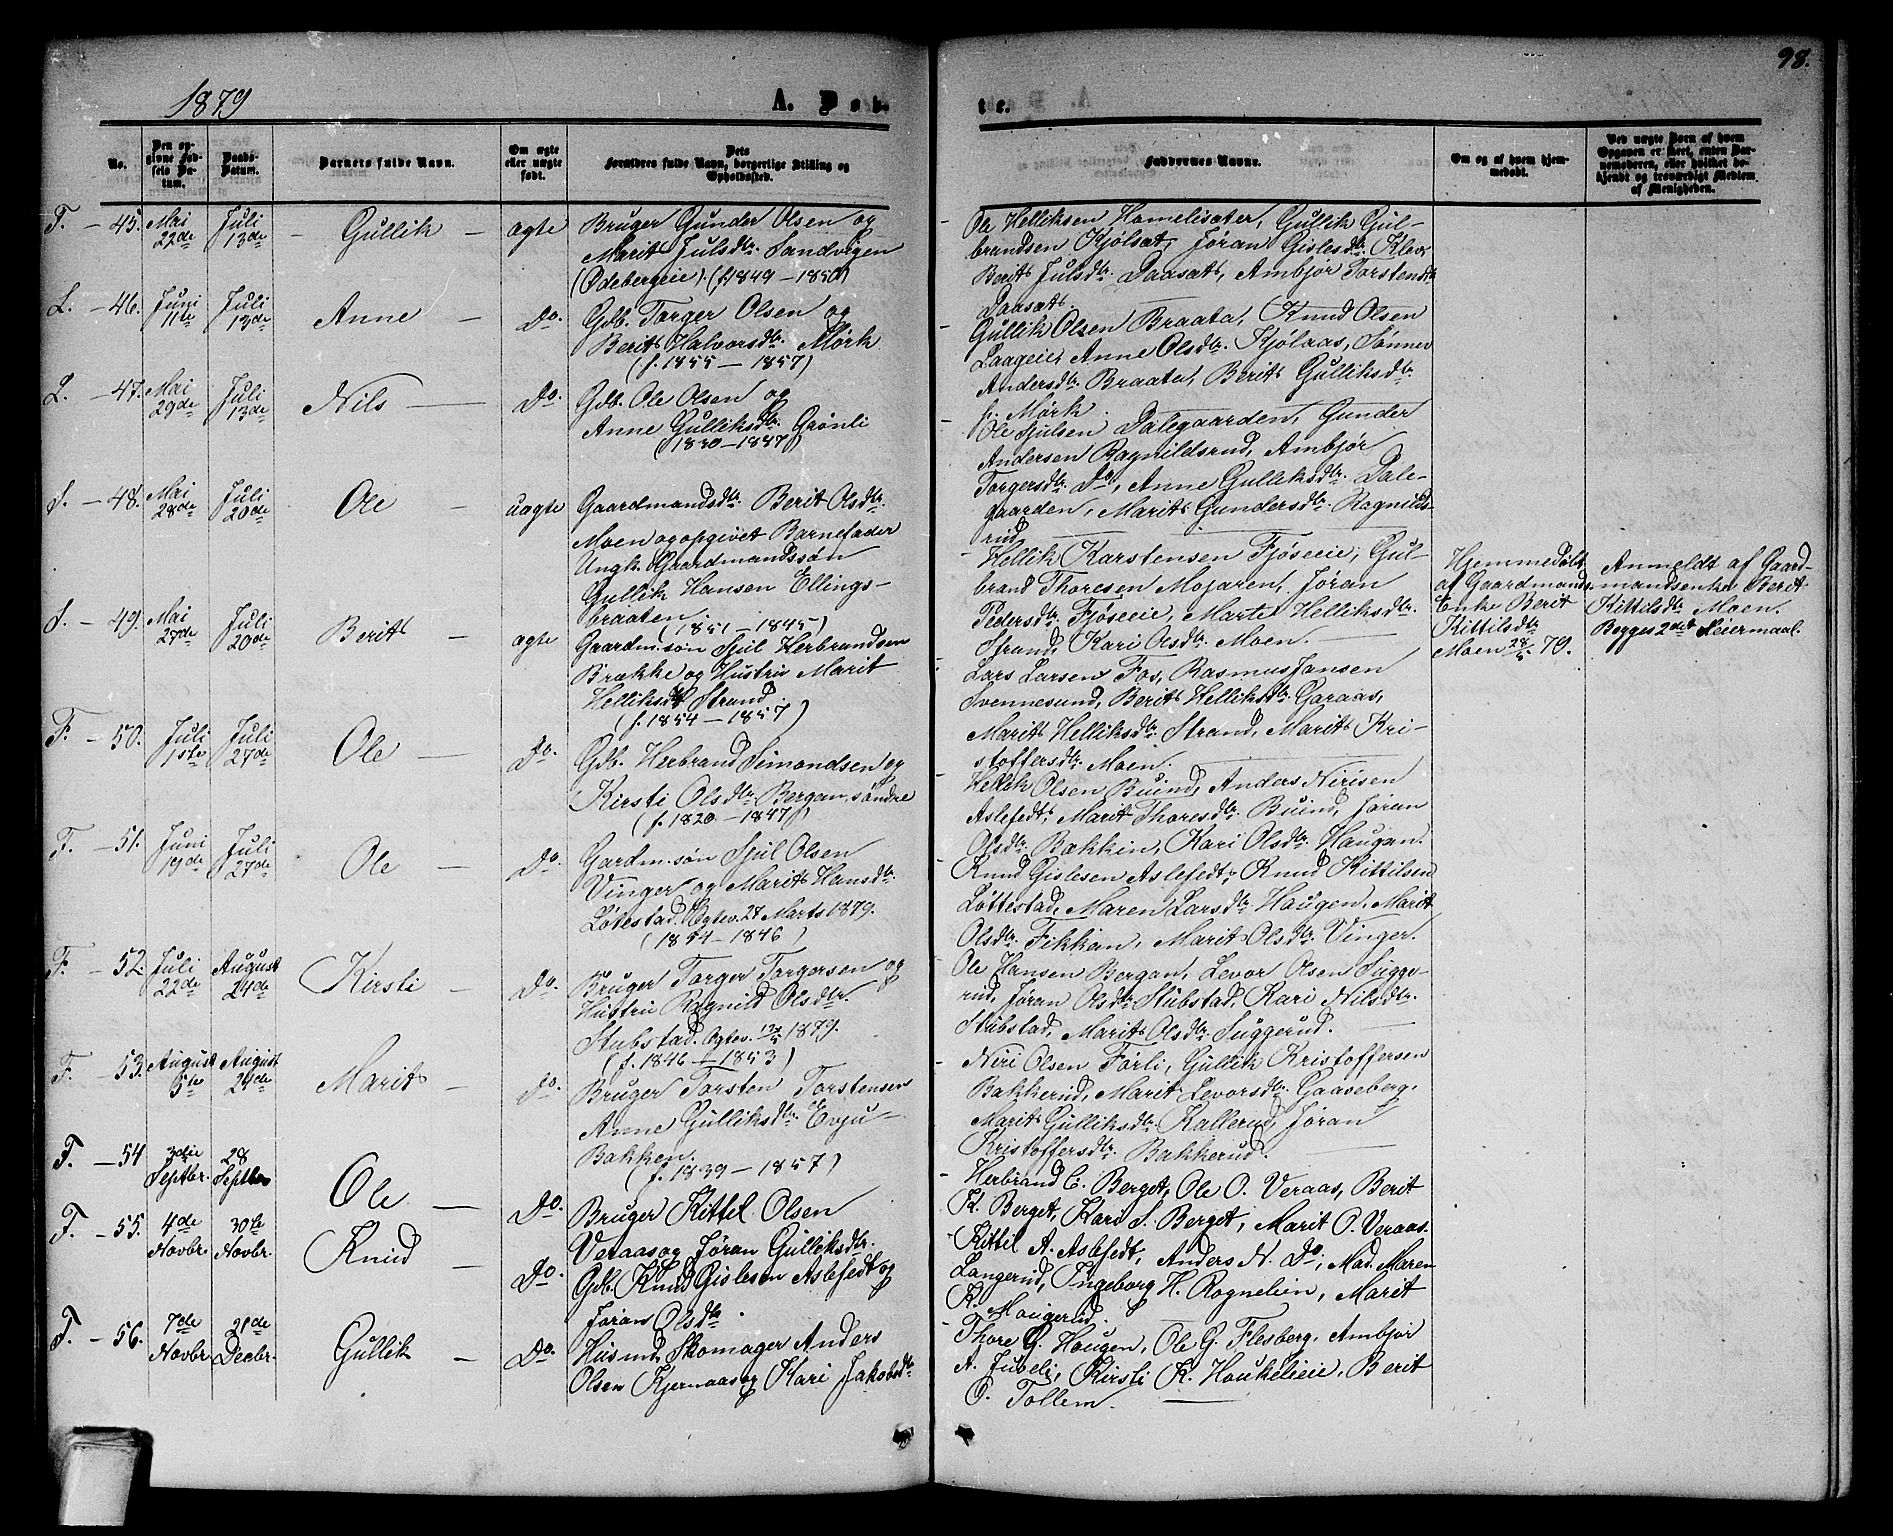 98.
1879
A. Døb-
te.
No.
Den opgivne Fødsels Datum.
Daabs-Datum.
Barnets fulde Navn.
Om ægte eller uægte født.
Dets Forældres fulde Navn, borgerlige Stilling og Opholdssted.
Faddernes Navne.
Om og af hvem hjemmedøbt.
Ved uægte Børn af hvem Opgaven er skeet, enten Barnemoderen, eller hvilket bekjendt og troværdigt Medlem af Menigheden.
F. — 45. Mai 22de Juli 13de — Gullik — ægte
Bruger Gunder Olsen og
Marit Julsdtr. Sandvigen
(Ødebergeie). (f. 1849 — 1850)
Ole Helliksen Hamelisæter, Gullik Gul-
brandsen Kjølsæt, Jøran Gislesdtr. Klev,
Berit Julsdtr. Daasæt, Ambjør Torstendtr.
Daasæt.
L. — 46. Juni 11te Juli 13de Anne — Do.
Gdb. Torger Olsen og
Berit Halvorsdtr. Mørk
(f. 1855 — 1857)
Gullik Olsen Braata, Knud Olsen
Laageie, Anne Olsdtr. Kjølaas, Sønnev
Andersdtr. Braata, Berit Gulliksdtr.
Mørk.
L. — 47. Mai 29de Juli 13de Nils — Do.
Gdb. Ole Olsen og
Anne Gulliksdtr. Grønli
(1830 — 1847)
Ole Sjulsen Dalegaarden, Gunder
Andersen Ragnildsrud, Ambjør
Torgersdtr. Do, Anne Gulliksdtr. Dale-
gaarden, Marit Gundersdtr. Ragnilds-
rud.
S. — 48. Mai 28de Juli 20de Ole — uægte
Gaardmandsdtr. Berit Olsdtr.
Moen og opgivet Barnefader
Ungk. Gaardmandssøn
Gullik Hansen Ellings-
braaten. (1851 — 1845)
Hellik Karstensen Fjøseie, Gul-
brand Thoresen Mojaren, Jøran
Pedersdtr. Fjøseeie, Marte Helliksdtr.
Strand, Kari Olsdtr. Moen.
Hjemmedøbt
af Gaardmands
Enke Berit
Kittilsdtr.
Moen 28/5 79.
Anmeldt af Gaard-
mandsenke Berit
Kittilsdtr. Moen.
Begges 2det Leiermaal.
S. — 49. Mai 27de Juli 20de Berit — ægte
Gaardm.søn Sjul Herbrandsen
Brække og Hustru Marit
Helliksdtr. Strand.
(f. 1854 — 1857)
Lars Larsen Fos, Rasmus Jansen
Svennesund, Berit Helliksdtr. Garaas,
Marit Helliksdtr. Strand, Marit Kri-
stoffersdtr. Moen.
F. — 50. Juli 1ste Juli 27de Ole — Do.
Gdb. Herbrand Simondsen og
Kirsti Olsdtr. Bergan, søndre
(f. 1820 — 1847)
Hellik Olsen Buind, Anders Nirisen
Aslefedt, Marit Thoresdtr. Buind, Jøran
Olsdtr. Bakkin, Kari Olsdtr. Haugan.
F. — 51. Juni 19de Juli 27de Ole — Do.
Gardm.søn Sjul Olsen
Vinger og Marit Hansdtr.
Løtestad. Ægtev. 27 Marts 1879.
(1854 — 1846)
Knud Gislesen Aslefedt, Knud Kittilsen
Løttestad, Maren Larsdtr. Haugen, Marit
Olsdtr. Fikkan, Marit Olsdtr. Vinger.
F. — 52. Juli 22de August 24de Kirsti — Do.
Bruger Torger Torgersen og
Hustru Ragnild Olsdtr.
Stubstad. Ægtev. 1879.
(f. 1846 — 1853)
Ole Hansen Bergan, Levor Olsen Sugge-
rud, Jøran Olsdtr. Stubstad, Kari Nilsdtr.
Stubstad, Marit Olsdtr. Suggerud.
F. — 53. August 5te August 24de Marit — Do.
Bruger Torsten Torstensen
Anne Gulliksdtr. Evju-
Bakken.
(f. 1839 — 1857)
Niri Olsen Førli, Gullik Kristoffersen
Bakkerud, Marit Levorsdtr. Gaaseberg,
Marit Gulliksdtr. Kallerud, Jøran
Kristoffersdtr. Bakkerud.
F. — 54 3die Septbr. 28 Septbr Ole — Do.
Bruger Kittel Olsen
Veraas og Jøran Gulliksdtr.
Herbrand E. Berget, Ole O. Veraas, Berit
K. Berget, Kari S. Berget, Marit O. Veraas.
F. — 55. 4de Novbr. 30te Novbr. Knud — Do.
Gdb. Knud Gislesen Aslefedt og
Jøran Olsdtr.
Kittil A. Aslefedt, Anders N. Do, Mad. Maren
Langerud, Ingeborg H. Rognelien, Marit
K. Mougerud.
F. — 56. 7de Novbr 21de Decbr. Gullik — Do.
Husmd. Skomager Anders
Olsen Kjernaas og Kari Jakobsdtr.
Thore G. Haugen, Ole G. Flesberg, Ambjør
A. Juveli, Kirsti K. Haukelieie, Berit
O. Tollem.